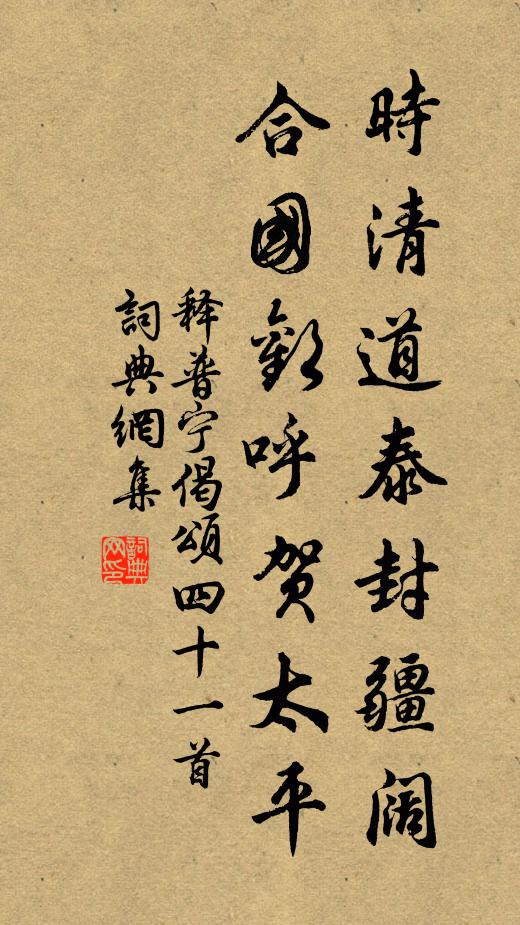 時清道泰封疆闊
合國歡呼賀太平
释普宁偈頌四十一首
詞典網集
詞典
网印